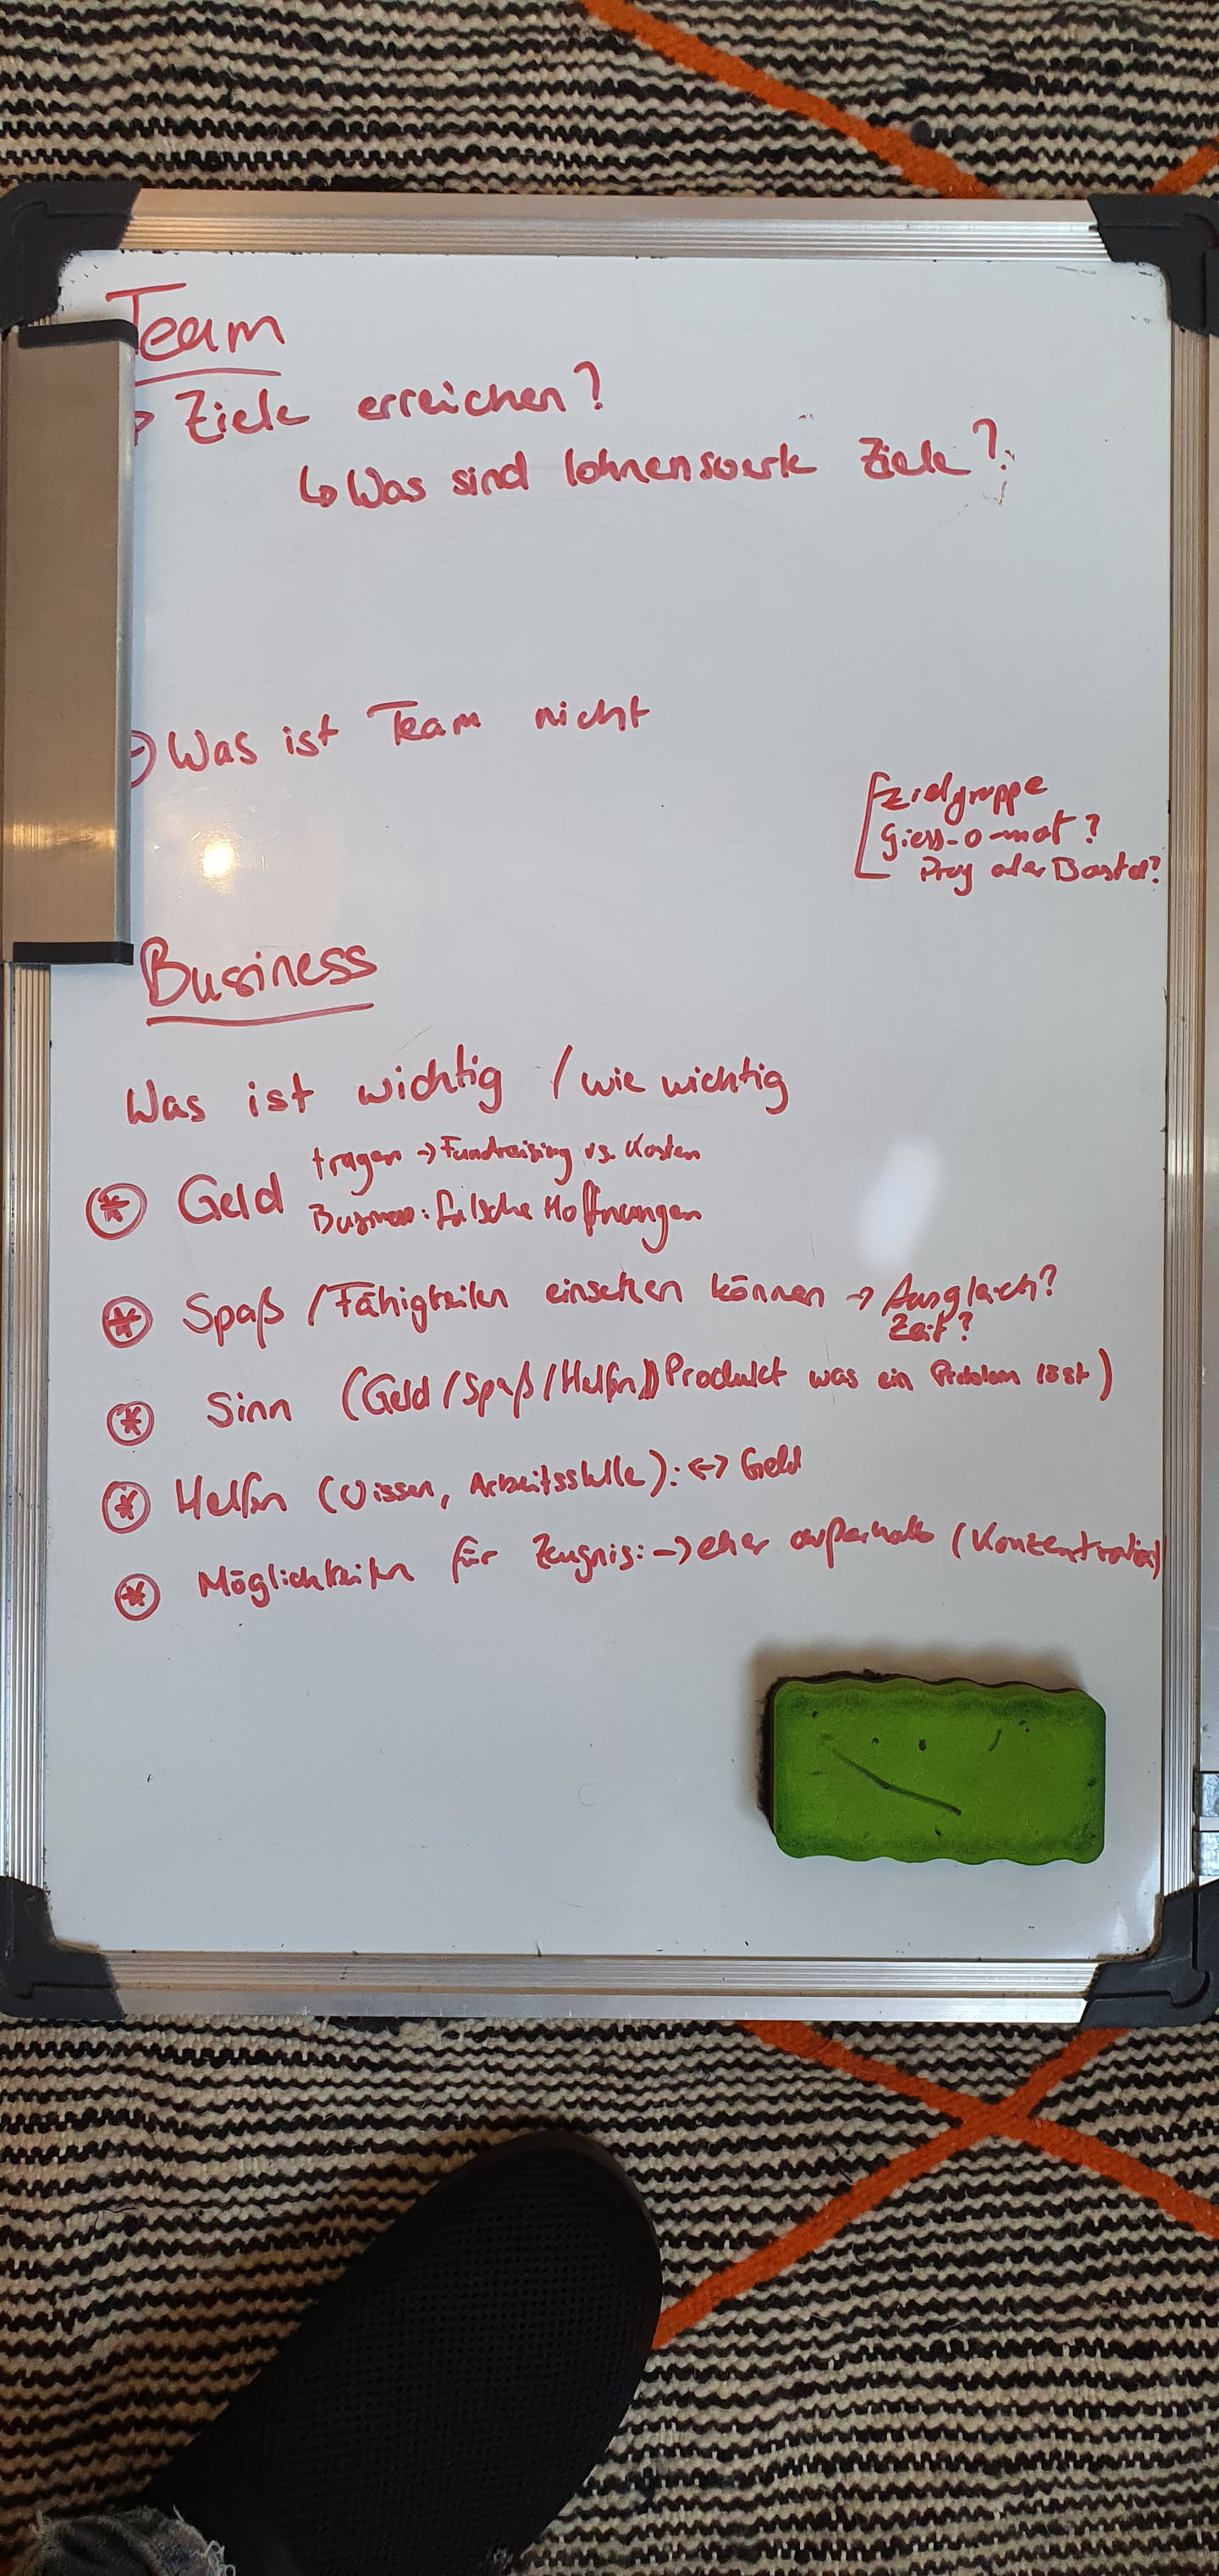 Team
→ Ziele erreichen?
↳ Was sind lohnenswerte Ziele?
Was ist Team nicht
Zielgruppe
Giess-o-mat?
Prog oder Bastel?
Business
Was ist wichtig / wie wichtig
tragen → Fundraising vs. Kosten
* Geld
Business: falsche Hoffnungen
* Spaß / Fähigkeiten einsetzen können → Ausgleich?
Zeit?
* Sinn (Geld / Spaß / Helfen)) Produkt was ein Problem löst)
* Helfen (Wissen, Arbeitsstelle): ↔ Geld
* Möglichkeiten für Zeugnis: → eher außerhalb (Konzentration)